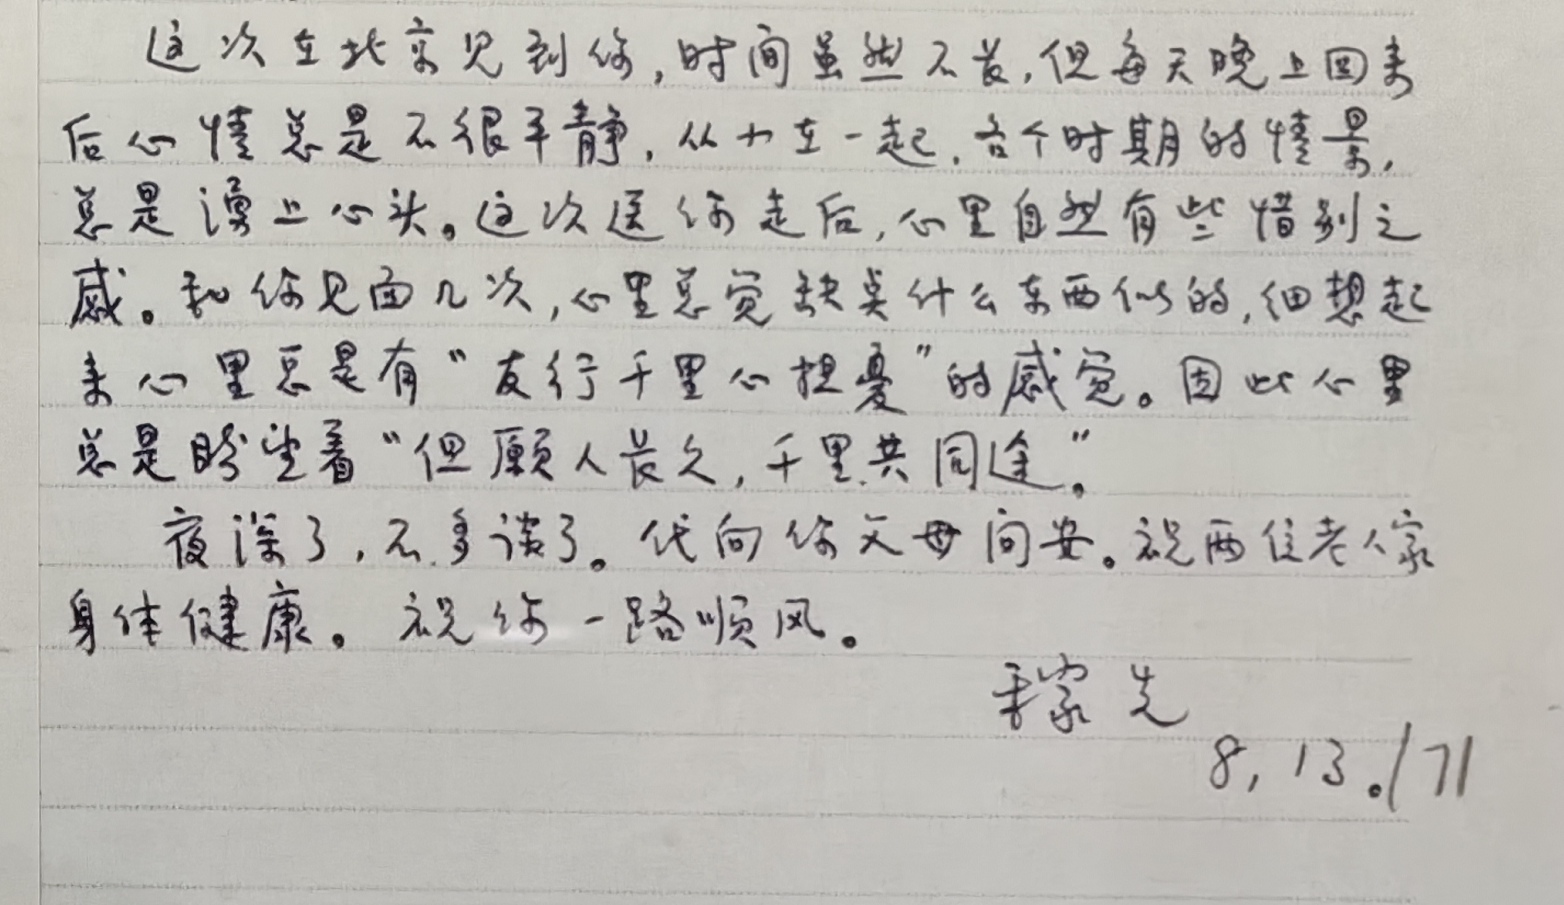 这次在北京见到你，时间虽然不长，但每天晚上回来
后心情总是不很平静，从小在一起，各个时期的情景，
总是涌上心头。这次送你走后，心里自然有些惜别之
感。和你见面几次，心里总觉缺点什么东西似的，细想起
来心里总是有“友行千里心担忧”的感觉。因此心里
总是盼望着“但愿人长久，千里共同途”。
夜深了，不多谈了。代向你父母问安。祝两位老人家
身体健康。祝你一路顺风。
稼先
8，13。/71